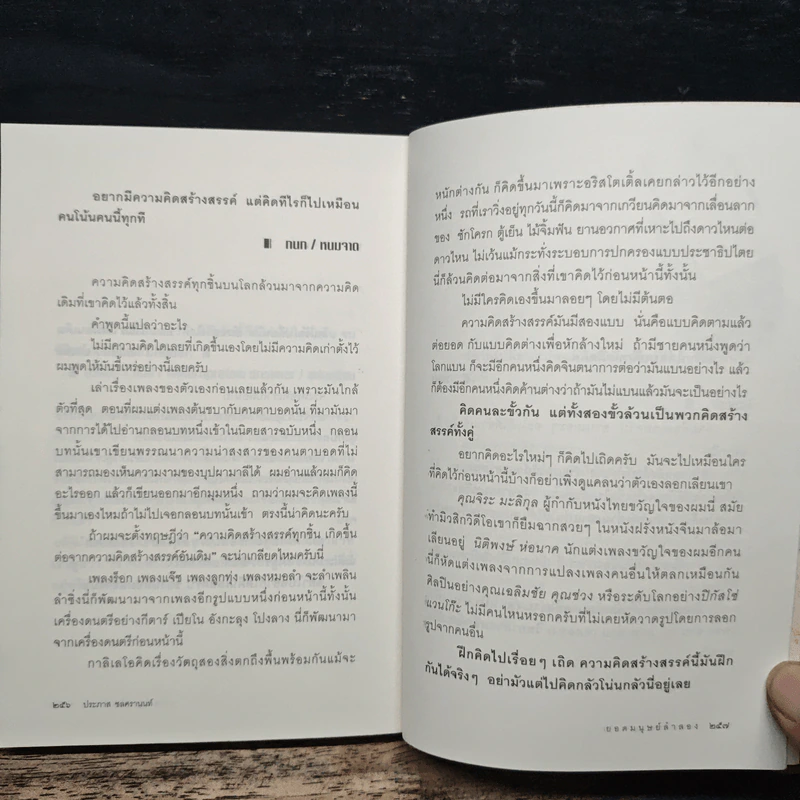 อยากมีความคิดสร้างสรรค์ แต่คิดทีไรก็ไปเหมือน
คนโน้นคนนี้ทุกที
กนก / หนมจาด
ความคิดสร้างสรรค์ทุกชิ้นบนโลกล้วนมาจากความคิด
เดิมที่เขาคิดไว้แล้วทั้งสิ้น
คำพูดนี้แปลว่าอะไร
ไม่มีความคิดใดเลยที่เกิดขึ้นเองโดยไม่มีความคิดเก่าตั้งไว้
ผมพูดให้มันขี้เหร่อย่างนี้เลยครับ
เล่าเรื่องเพลงของตัวเองก่อนเลยแล้วกัน เพราะมันใกล้
ตัวที่สุด ตอนที่ผมแต่งเพลงต้นชบากับคนตาบอดนั้น ที่มามันมา
จากการได้ไปอ่านกลอนบทหนึ่งเข้าในนิตยสารฉบับหนึ่ง กลอน
บทนั้นเขาเขียนพรรณนาความน่าสงสารของคนตาบอดที่ไม่
สามารถมองเห็นความงามของบุปผามาลีได้ ผมอ่านแล้วผมก็คิด
อะไรออก แล้วก็เขียนออกมาอีกมุมหนึ่ง ถามว่าผมจะคิดเพลงนี้
ขึ้นมาเองไหมถ้าไม่ไปเจอกลอนบทนั้นเข้า ตรงนี้น่าคิดนะครับ
ถ้าผมจะตั้งทฤษฎีว่า “ความคิดสร้างสรรค์ทุกชิ้น เกิดขึ้น
ต่อจากความคิดสร้างสรรค์อันเดิม” จะน่าเกลียดไหมครับนี่
เพลงร็อก เพลงแจ๊ซ เพลงลูกทุ่ง เพลงหมอลำ จะลำเพลิน
ลำซิ่งนี่ก็พัฒนามาจากเพลงอีกรูปแบบหนึ่งก่อนหน้านี้ทั้งนั้น
เครื่องดนตรีอย่างกีตาร์ เปียโน อังกะลุง โปงลาง นี่ก็พัฒนามา
จากเครื่องดนตรีก่อนหน้านี้
กาลิเลโอคิดเรื่องวัตถุสองสิ่งตกถึงพื้นพร้อมกันแม้จะ
๒๕๖ ประภาส ชลศรานนท์
หนักต่างกัน ก็คิดขึ้นมาเพราะอริสโตเติ้ลเคยกล่าวไว้อีกอย่าง
หนึ่ง รถที่เราวิ่งอยู่ทุกวันนี้ก็คิดมาจากเกวียนคิดมาจากเลื่อนลาก
ของ ชักโครก ตู้เย็น ไม้จิ้มฟัน ยานอวกาศที่เหาะไปถึงดาวไหนต่อ
ดาวไหน ไม่เว้นแม้กระทั่งระบอบการปกครองแบบประชาธิปไตย
นี่ก็ล้วนคิดต่อมาจากสิ่งที่เขาคิดไว้ก่อนหน้านี้ทั้งนั้น
ไม่มีใครคิดเองขึ้นมาลอยๆ โดยไม่มีต้นตอ
ความคิดสร้างสรรค์มันมีสองแบบ นั่นคือแบบคิดตามแล้ว
ต่อยอด กับแบบคิดต่างเพื่อหักล้างใหม่ ถ้ามีชายคนหนึ่งพูดว่า
โลกแบน ก็จะมีอีกคนหนึ่งคิดจินตนาการต่อว่ามันแบนอย่างไร แล้ว
ก็ต้องมีอีกคนหนึ่งคิดค้านต่างว่าถ้ามันไม่แบนแล้วมันจะเป็นอย่างไร
คิดคนละขั้วกัน แต่ทั้งสองขั้วล้วนเป็นพวกคิดสร้าง
สรรค์ทั้งคู่
อยากคิดอะไรใหม่ๆ ก็คิดไปเถิดครับ มันจะไปเหมือนใคร
ที่คิดไว้ก่อนหน้านี้บ้างก็อย่าเพิ่งดูแคลนว่าตัวเองลอกเลียนเขา
คุณจิระ มะลิกุล ผู้กำกับหนังไทยขวัญใจของผมนี่ สมัย
ทำมิวสิกวิดีโอเขาก็ยืมฉากสวยๆ ในหนังฝรั่งหนังจีนมาล้อมา
เลียนอยู่ นิติพงษ์ ห่อนาค นักแต่งเพลงขวัญใจของผมอีกคน
นี่ก็หัดแต่งเพลงจากการแปลงเพลงคนอื่นให้ตลกเหมือนกัน
ศิลปินอย่างคุณเฉลิมชัย คุณช่วง หรือระดับโลกอย่างปิกัสโซ่
แวนโก๊ะ ไม่มีคนไหนหรอกครับที่ไม่เคยหัดวาดรูปโดยการลอก
รูปจากคนอื่น
ฝึกคิดไปเรื่อยๆ เถิด ความคิดสร้างสรรค์นี้มันฝึก
กันได้จริงๆ อย่ามัวแต่ไปคิดกลัวโน่นกลัวนี่อยู่เลย
ยอดมนุษย์ลำลอง ๒๕๗